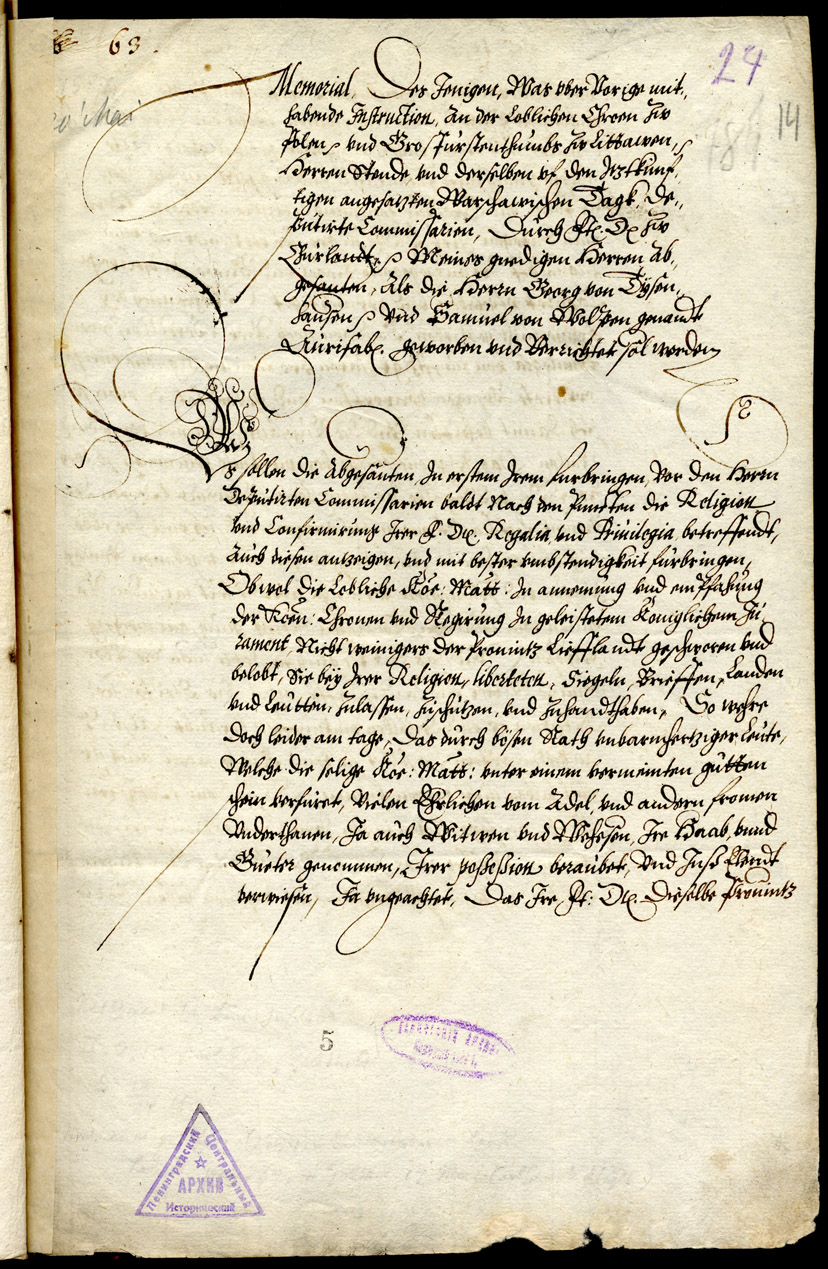 63.
24
14
78
Memorial, Des Jenigen, Was vber Vorige mit„
habende Instruction, An der Loblichen Chroen Zw
Polen, vnd GrosFurstenthumbs Zw Littawen,
Herren Stende vnd derselben vf den Itzkunf„
tigen angesatzten Warschawischen Tagk, De„
putirte Commissarien, Durch F. D. Zw
Curlandt, Meines gnedigen Herren Ab„
gesanten, Als die Herrn Georg von Tysen„
hausen, Vnd Samuel von Wolssen genandt
Aurifab. geworben vnd Verrichtet sol werden
Es sollen die Abgesanten, In erstem Irem furbringen, Vor den Herrn
Deputirten Commissarien baldt Nach den Puncten die Religion
vnd Confirmirung Irer F. D. Regalia vnd Priuilegia betreffendt,
Auch diesen antzeigen, vnd mit bester vmbstendigkeit furbringen,
Ob wol die Lobliche Köe: Matt: In annemung vnd empfahung
der Köen: Chronen vnd Regirung In geleistetem Königlichem Ju„
rament, Nicht weinigers der Prouintz Liefflandt geschworen vnd
belobt, Sie beÿ Irer Religion, liberteten, Siegeln, Brieffen, Landen
vnd Leutten, Zulassen, Zuschutzen, vnd Zuhandthaben, So wehre
doch leider am tage, Das durch bösen Rath vnbarmhertziger Leute,
Welche die selige Köe: Matt: vnter einem vermeinten gutten
schein verfuret, Vielen Ehrlichen vom Adel, vnd andern fromen
Vnderthanen, Ja auch Witwen vnd Weÿsen, Ire Haab, vnnd
Gueter genommen, Irer possession beraubet, Vnd Inß Elendt
verwiesen, Ja vngeachtet, Das Ire, F: D. Dieselbe Prouintz
5
Ленинградский Центральный
АРХИВ
Исторический